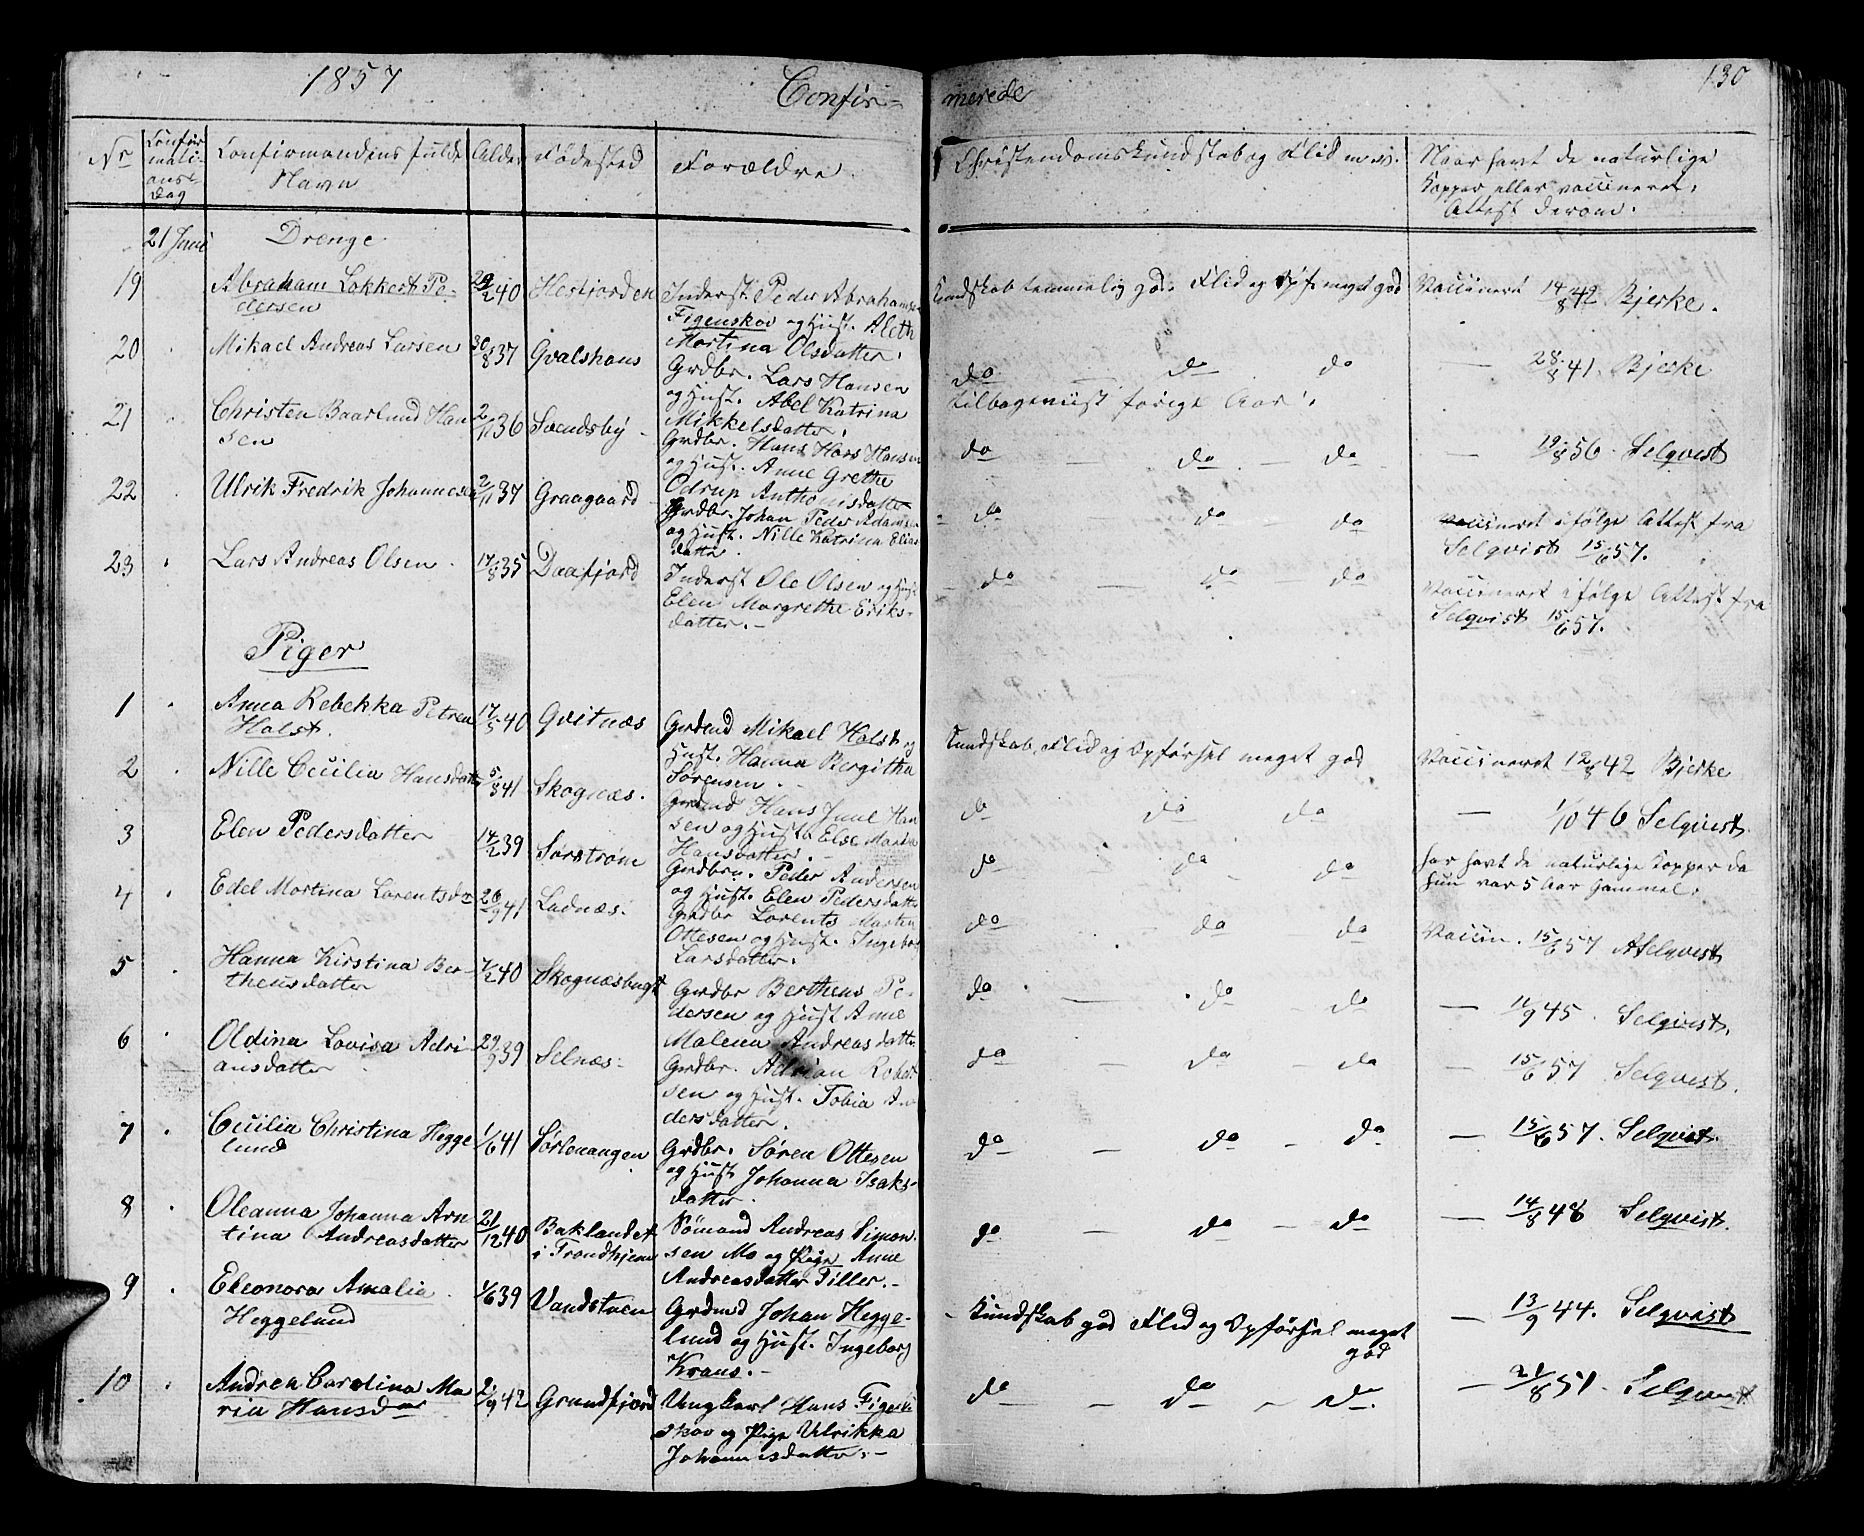 1857
Confir-
merede
130
Nr
Confir
mati-
ons-
dag
Confirmandens fulde
Navn
Alder
Fødested
Forældre.
Christendomskundskab og Flid m. v.
Naar havt de naturlige
Kopper eller vaccineret,
Attest derom.
21 Juni
Drenge
19
Abraham Lokkert Pe-
dersen
29/2 40
Hesfjorden
Inderst Peder Abrahamsen
Figenskov og Hust. Aleth
Martina Olsdatter.
Kundskab temmelig god. Flid og Opf. meget god
Vaccineret 14/8 42 Bjerke.
20
Mikael Andreas Larsen
30/8 37
Gvalshaus
Grdbr. Lars Hansen
og Hust. Abel Katrina
Mikkelsdatter.
do — do do
tilbageviist forige Aar.
— 28/8 41. Bjerke
21
Christen Baarlund Han
sen
2/11 36
Svendsby
Grdbr. Hans Hars Hansen
og Hust. Anne Grethe
Odrup Anthonisdatter
do — do — do
— 19/8 56. Selqvist
22
Ulrik Fredrik Johannesen
2/11 37
Graagaard
Grdbr. Johan Peder Adamsen
og Hust. Nille Katrina Elias
datter
do do do
Vaccineret ifølge Attest fra
Selqvist 15/6 57.
23
Lars Andreas Olsen
17/8 35
Daafjord
Inderst Ole Olsen og Hust
Elen Margrethe Eriks-
datter.-
do — do do
Vaccineret ifølge Attest fra
Selqvist 15/6 57.
Piger
1
Anna Rebekka Petrea
Holst.
17/5 40
Gvitnæs
Grdmd Mikael Holst og
Hust. Hanna Bergitha
Sørensen.
Kundskab, Flid og Opførsel meget god
Vaccineret 12/8 42 Bjerke
2
Nille Cecilia Hansdatter
5/8 41
Skognæs.
Grdmd Hans June Han
sen og Hust. Else Martha
Hansdatter.
do do do
— 1/10 46 Selqvist
3
Elen Pedersdatter
14/2 39
Sørstrøm
Grdbr. Peder Andersen
og Hust. Elen Pedersdatter
do do do
har havt de naturlige Kopper da
hun var 5 Aar Gammel.
4
Edel Martina Lorentsdr
26/9 41
Ladnæs.
Grdbr Lorents Martin
Ottesen og Hust. Ingebor
Larsdatter.
do — do do
Vaccin. 15/6 57 A Selqvist
5
Hanna Kirstina Ber-
theusdatter
7/2 40
Skognæsbugt
Grdbr Bertheus Pe-
dersen og Hust Anne
Malena Andreasdatter.
do — do — do
— 11/9 45. Selqvist.
6
Oldina Lovisa Adri-
ansdatter
29/9 39
Selnæs.
Grdbr. Adrian Robert
sen og Hust. Tobia An
dersdatter.
do — do — do
— 15/6 57 Selqvist.
7
Cecilia Christina Hegge
lund
1/6 41
Sørlenangen
Grdbr. Søren Ottesen
og Hust Johanna Isaks-
datter.
do — do — do
— 15/6 57. Selqvist.
8
Oleanna Johanna Arn
tina Andreasdatter
21/12 40
Baklandet
i Trondhjem
Sømand Andreas Simon-
sen Mo og Pige Anne
Andreasdatter Tiller.-
do — do — do
— 14/8 48 Selqvist.
9
Eleonora Amalia
Heggelund
1/6 39
Vandstuen
Grdmd Johan Hegge-
lund og Hust. Ingeborg
Kraus.-
Kundskab god Flid og Opførsel meget
god
— 13/9 44. Selqvist
10
Andrea Carolina Ma
ria Hansdr
2/9 42
Grundfjord
Ungkarl Hans Figen
skov og Pige Ulrikka
Johannisdatter.-
do — do — do.
— 21/8 51. Selqvist